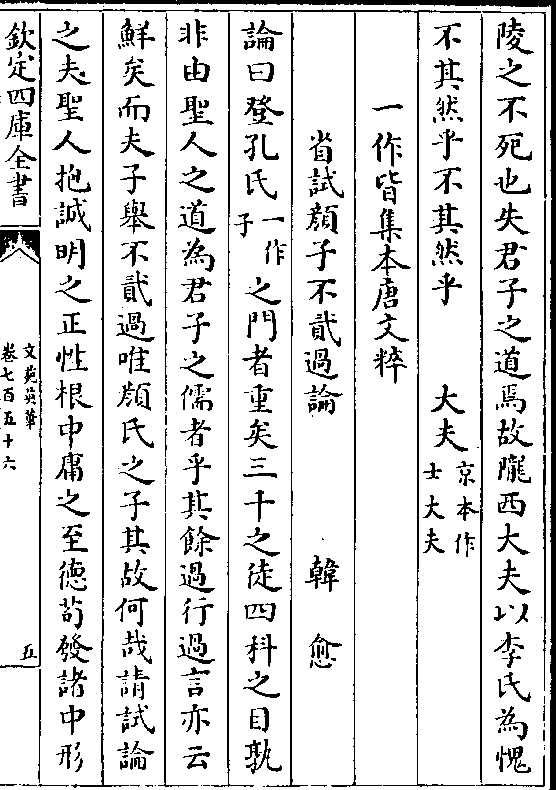 陵之不死也失君子之道焉故隴西大夫以李氏為愧
不其然乎不其然乎 大夫京本作士大夫
一作皆集本唐文粹
省試顏子不貳過論 韓愈
論曰登孔氏一作子之門者重矣三千之徒四科之目孰
非由聖人之道為君子之儒者乎其餘過行過言亦云
鮮矣而夫子舉不貳過唯顏氏之子其故何哉請試論
之夫聖人抱誠明之正性根中庸之至德茍發諸中形
欽定四庫全書
文苑英華
卷七百五十六
五